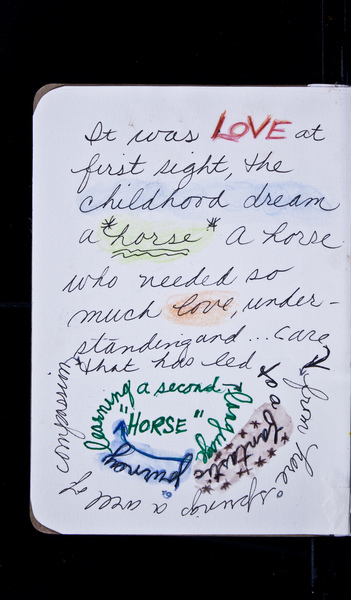 It was LOVE at
first sight, the
childhood dream
a *horse* A horse
who needed so
much love, under-
standing and ... care
that has led
to a
fantastic
journey
learning a second language
"HORSE"
from here springs a well of compassion